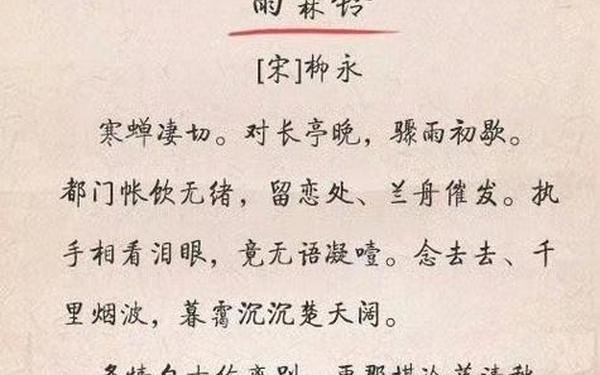 雨霖铃
[宋]柳永
寒蝉凄切。对长亭晚，骤雨初歇。
都门帐饮无绪，留恋处、兰舟催发。执
手相看泪眼，竟无语凝噎。念去去、千
里烟波，暮霭沉沉楚天阔。
多情自古伤离别，更那堪冷落清秋